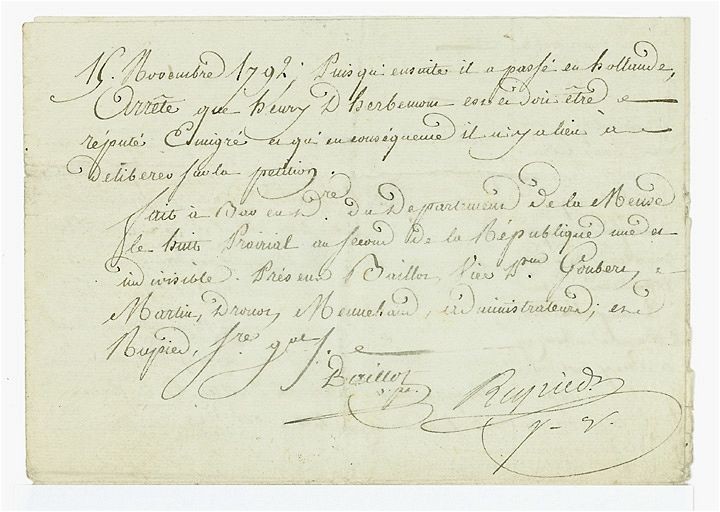 15. Novembre 1792; Puisqu'ensuite il a passé en hollande,
Arrête que henry D'herbemont est et doit être
réputé Emigré et qu'en conséquence il n'y a lieu à
Délibérer sur la pétition.
fait à Bar en Dre. du Département de la Meuse
le huit Prairial an second de la République une et
indivisible. Présens Baillot, Vice Pdnt
Martin, Drouot, Mennehand, administrateurs; et
Rupied, Sre. gal.
Baillot
v. pt.
Rupied